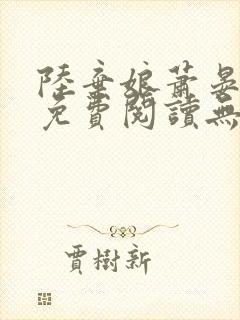 陸棄娘蕭晏
免費閱讀無
賈樹新